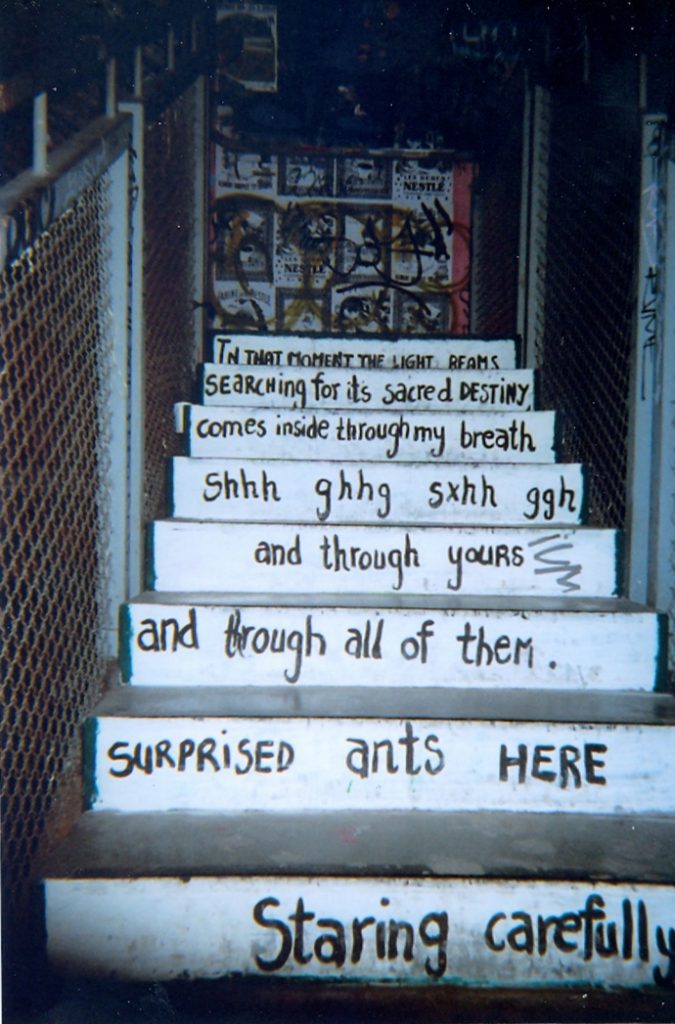 LES BEBES
NESTLE
NESTLE
FARINE NESTLE
IN THAT MOMENT THE LIGHT BEAMS
SEARCHING for it's sacred DESTINY
comes inside through my breath
shhh ghhg sxhh ggh
and through yours
and through all of them.
SURPRISED ants HERE
Staring carefully